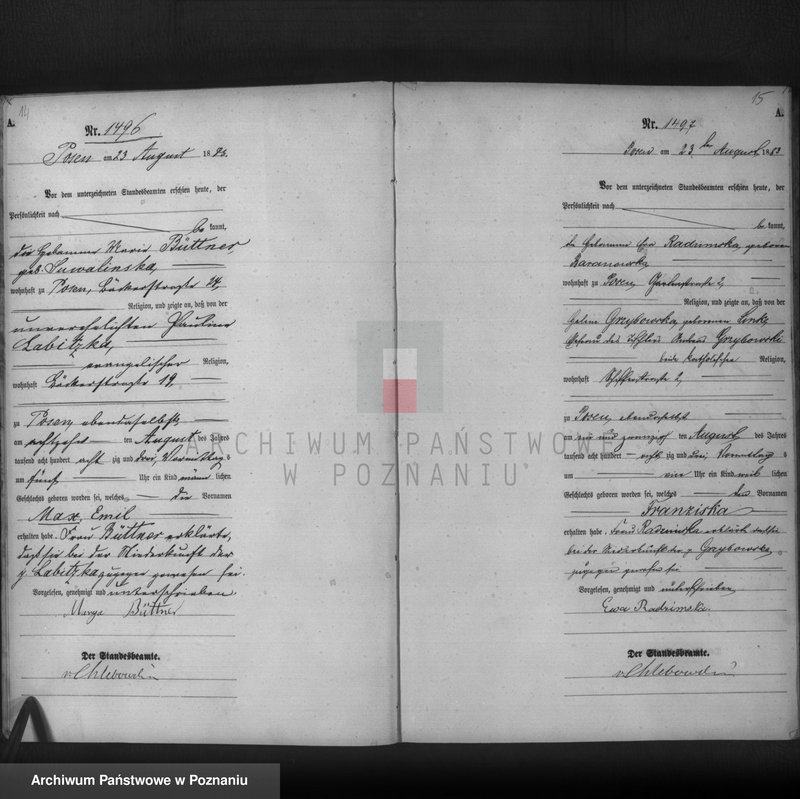 14
A.
Nr. 1496
Posen am 23 August 1883.
Vor dem unterzeichneten Standesbeamten erschien heute, der
Persönlichkeit nach
be kannt,
die Hebamme Marie Büttner,
geb. Suwalinska,
wohnhaft zu Posen, Bäckerstraße 24
Religion, und zeigte an, daß von der
unverehelichten Pauline
Labitzka,
evangelischer Religion,
wohnhaft Bäckerstraße 19,
zu Posen ebendaselbst
am achtzehn ten August des Jahres
tausend acht hundert acht zig und drei, Vormittag s
um fünf Uhr ein Kind männ lichen
Geschlechts geboren worden sei, welches die Vornamen
Max, Emil
erhalten habe. Frau Büttner erklärte,
daß sie bei der Niederkunft der
p Labitzka zugegen gewesen sei.
Vorgelesen, genehmigt und unterschrieben
Marya Büttner
Der Standesbeamte.
v. Chlebowski
15
A.
Nr. 1497
Posen am 23 ten August 1883
Vor dem unterzeichneten Standesbeamten erschien heute, der
Persönlichkeit nach
be kannt,
die Hebamme Eva Radzimska, geborene
Baranowska,
wohnhaft zu Posen, 2,
Religion, und zeigte an, daß von der
Grzybowska, geborenen
Ehefrau des Grzybowski
beide katholischer Religion,
wohnhaft Schifferstraße 2,
zu Posen ebendaselbst
am ein und zwanzig ten August des Jahres
tausend acht hundert acht zig und drei Vormittag s
um vier Uhr ein Kind weib lichen
Geschlechts geboren worden sei, welches den Vornamen
Franziska
erhalten habe. Frau Radzimska erklärte daß sie
bei der Niederkunft der p Grzybowska
zugegen gewesen sei
Vorgelesen, genehmigt und unterschrieben
Ewa Radzimska.
Der Standesbeamte.
v. Chlebowski
ARCHIWUM PAŃSTWOWE
W POZNANIU
Archiwum Państwowe w Poznaniu